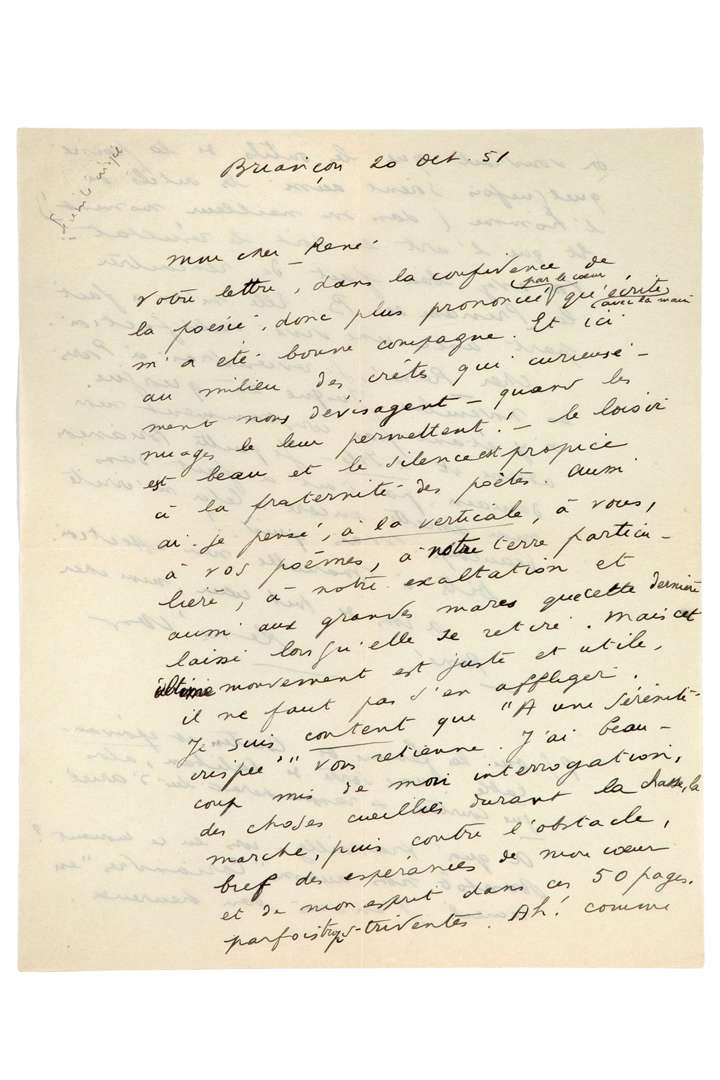 Briançon 20 oct. 51
mon cher René
Votre lettre, dans la confidence de
la poésie, donc plus prononcée par le cœur qu'écrite
avec la main
m'a été bonne compagne. Et ici
au milieu des crêtes qui curieuse-
ment nous dévisagent – quand les
nuages le leur permettent! – le loisir
est beau et le silence est propice
à la fraternité des poètes. Aussi
ai-je pensé, à la verticale, à vous,
à vos poèmes, à notre terre particu-
lière, à notre exaltation et
aussi aux grandes mares que cette dernière
laisse lorsqu'elle se retire. Mais cet
ultime mouvement est juste et utile,
il ne faut pas s'en affliger.
Je suis content que "A une Sérénité
crispée" vous retienne. J'ai beau-
coup mis de mon interrogation,
des choses cueillies durant la chasse, la
marche, puis contre l'obstacle,
bref des espérances de mon cœur
et de mon esprit dans ces 50 pages.
parfois Ah! comme